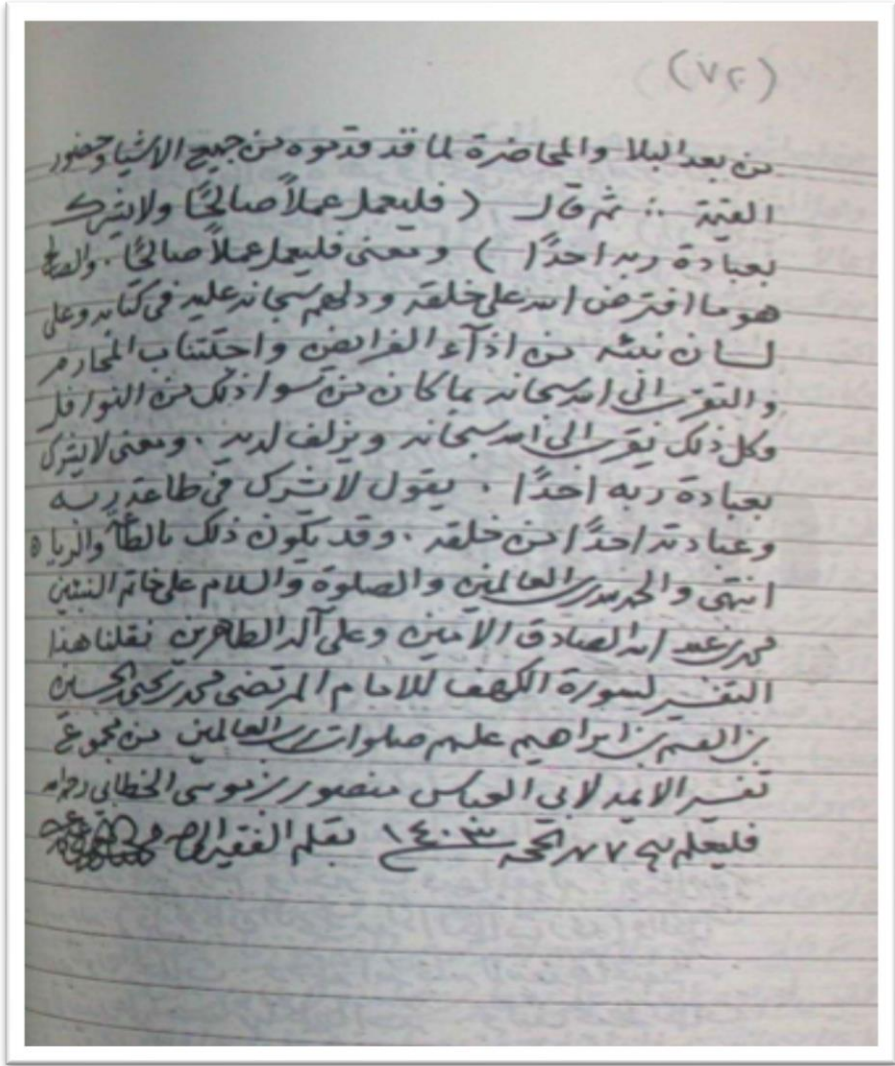 (٧٢)
من بعد البلا والمحاضرة لما قد قدموه من جميع الاشيا وحضور
القيمة :: ثم قال ( فليعمل عملاً صالحًا ولا يشرك
بعبادة ربه احدًا ) ومعنى فليعمل عملاً صالحًا . والصالح
هو ما افترض الله على خلقه ودلهم سبحانه عليه في كتابه وعلى
لسان نبيئه من اداء الفرايض واجتناب المحارم
والتقرب الى الله سبحانه بما كان من سوا ذلك من النوافل
وكل ذلك يقرب الى الله سبحانه ويزلف لديه . ومعنى لا يشرك
بعبادة ربه احدًا . يقول لا يشرك في طاعة ربه
وعبادته احدًا من خلقه . وقد يكون ذلك والريا ه
انتهى والحمد لله رب العالمين والصلوة والسلام على خاتم النبيين
محمد بن عبد الله الصادق الامين وعلى آله الطاهرين نقلنا هذا
التفسير لسورة الكهف للامام المرتضى محمد بن يحيى بن الحسين
بن القسم بن ابراهيم عليهم صلوات رب العالمين من مجموع
تفسير الايمه لابي العباس منصور بن موسى الخطابي رحمه الله
فليعلم ٧ الحجه ١٤٠٣ بقلم الفقير الى الله